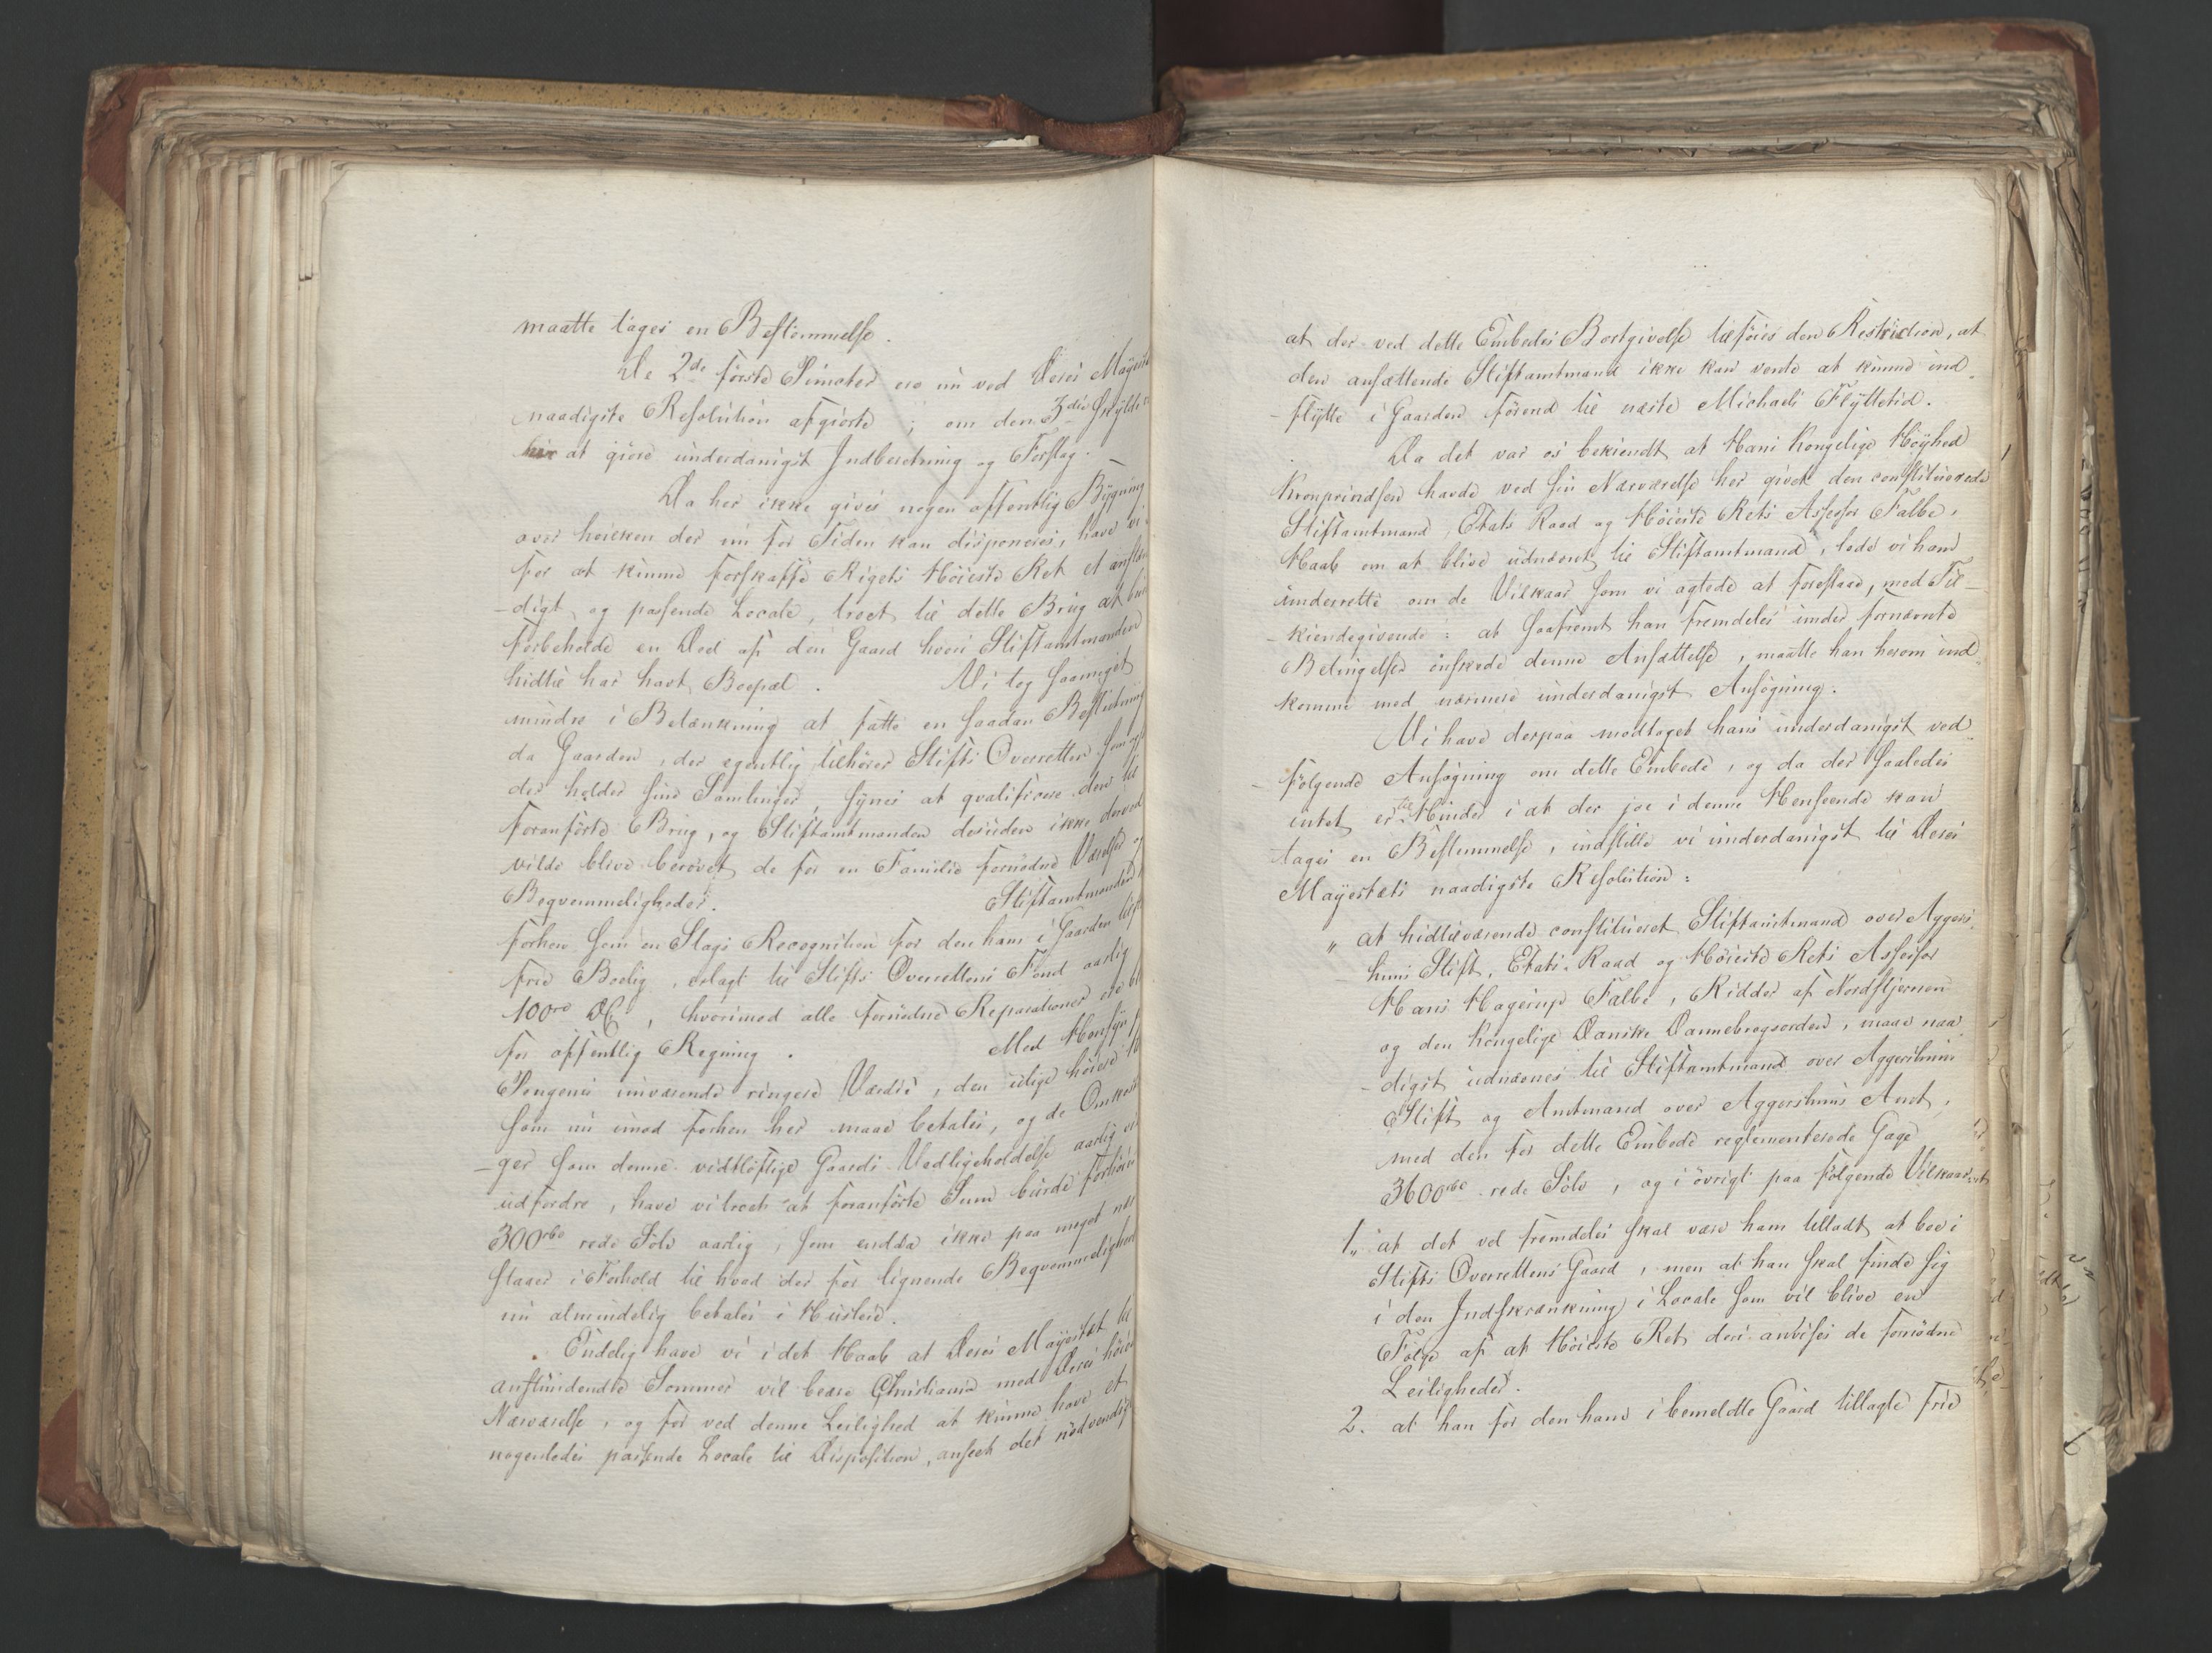 maatte tages en Bestemmelse.
De 2de første Puncter ere nu ved Deres Mayestæ
naadigste Resolution afgiorte; om den 3die skylde v
her at giøre underdanigst Indberetning og Forslag.
Da her ikke gives nogen offentlig Bygning
over hvilken der nu for Tiden kan disponeres, have vi
for at kunne forskaffe Rigets Høieste Ret et anstæn
-digt og passende Locale, troet til dette Brug at bur
forbeholde en Deel af den Gaard hvori Stiftamtmanden
hidtil har havt Boepæl. Vi tog saameget
mindre i Betænkning at fatte en saadan Beslutning
da Gaarden, der egentlig tilhører Stifts Overretten som og
der holder sine Samlinger, synes at qvalificere den til
foranførte Brug, og Stiftamtmanden desuden ikke derved
vilde blive berøvet de for en Familie fornødne Værelser og
Beqvemmeligheder. Stiftamtmanden
forhen som en Slags Recognition for den ham i Gaarden till
frie Boelig, erlagt til Stifts Overrettens Fond aarlig
100rd DC, hvorimod alle fornødne Reparationer ere be
for offentlig Regning. Med Hensyn
Pengenes nuværende ringere Værdie, den ulige høiere
som nu imod forhen her maae betales, og de Omkost
-ger som denne vidtløftige Gaards Vedligeholdelse aarlig vi
udfordre, have vi troet at foranførte Sum burde forhøies
300rbd rede Sølv aarlig, som endda ikke paa meget nær
staaer i Forhold til hvad der for lignende Beqvemmeligheder
nu almindelig betales i Huusleie.
Endelig have vi i det Haab at Deres Mayestæt til
anstundende Sommer vil beære Christiania med Deres høie
Nærværelse, og for ved denne Leilighed at kunne have et
nogenledes passende Locale til Disposition, anseet det nødvendigt
at der ved dette Embedes Bortgivelse tilføies den Restriction, at
den ansættende Stiftamtmand ikke kan vente at kunne ind
-flytte i Gaarden førend til næste Michaeli Flyttetid.
Da det var os bekiendt at Hans Kongelige Høyhed
Kronprindsen havde ved sin Nærværelse her givet den constituerede
Stiftamtmand, Etats Raad og Høieste Rets Assessor Falbe,
Haab om at blive udnævnt til Stiftamtmand, lode vi ham
underrette om de Vilkaar som vi agtede at foreslaae, med Til-
-kiendegivende: at saafremt han fremdeles under fornævnte
Betingelser ønskede denne Ansættelse, maatte han herom ind
komme med nærmere underdanigst Ansøgning.
Vi have derpaa modtaget hans underdanigst ved
-følgende Ansøgning om dette Embede, og da der saaledes
intet er til Hinder i at der jo i denne Henseende kan
tages en Bestemmelse, indstille vi underdanigst til Deres
Mayestæts naadigste Resolution:
" at hidtilværende constitueret Stiftamtmand over Aggers
huus Stift, Etats-Raad og Høieste Rets Assessor
Hans Hagerup Falbe, Ridder af Nordstjernen
og den Kongelige Danske Dannebrogsorden, maae naa
-digst udnævnes til Stiftamtmand over Aggershuus
Stift og Amtmand over Aggershuus Amt,
med den for dette Embede reglementerede Gage
3600rbd rede Sølv, og i øvrigt paa følgende Vilkaar:
1, at det vel fremdeles skal være ham tilladt at boe i
Stifts Overrettens Gaard, men at han skal finde sig
i den Indskrænkning i Locale som vil blive en
Følge af at Høieste Ret deri anvises de fornødne
Leiligheder.
2. at han for den ham i bemeldte Gaard tillagte frie